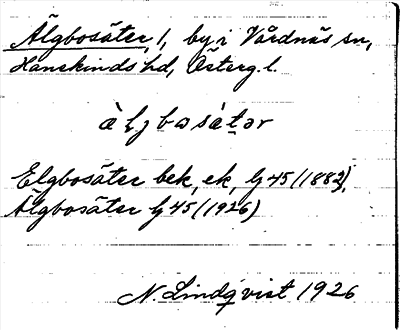 Älgbosäter, 1, by i Vårdnäs sn,
Hanekinds hd, Österg. l.
Elgbosäter bek, ek, Gj 45 (1882),
Älgbosäter Gj 45 (1926)
N. Lindqvist 1926